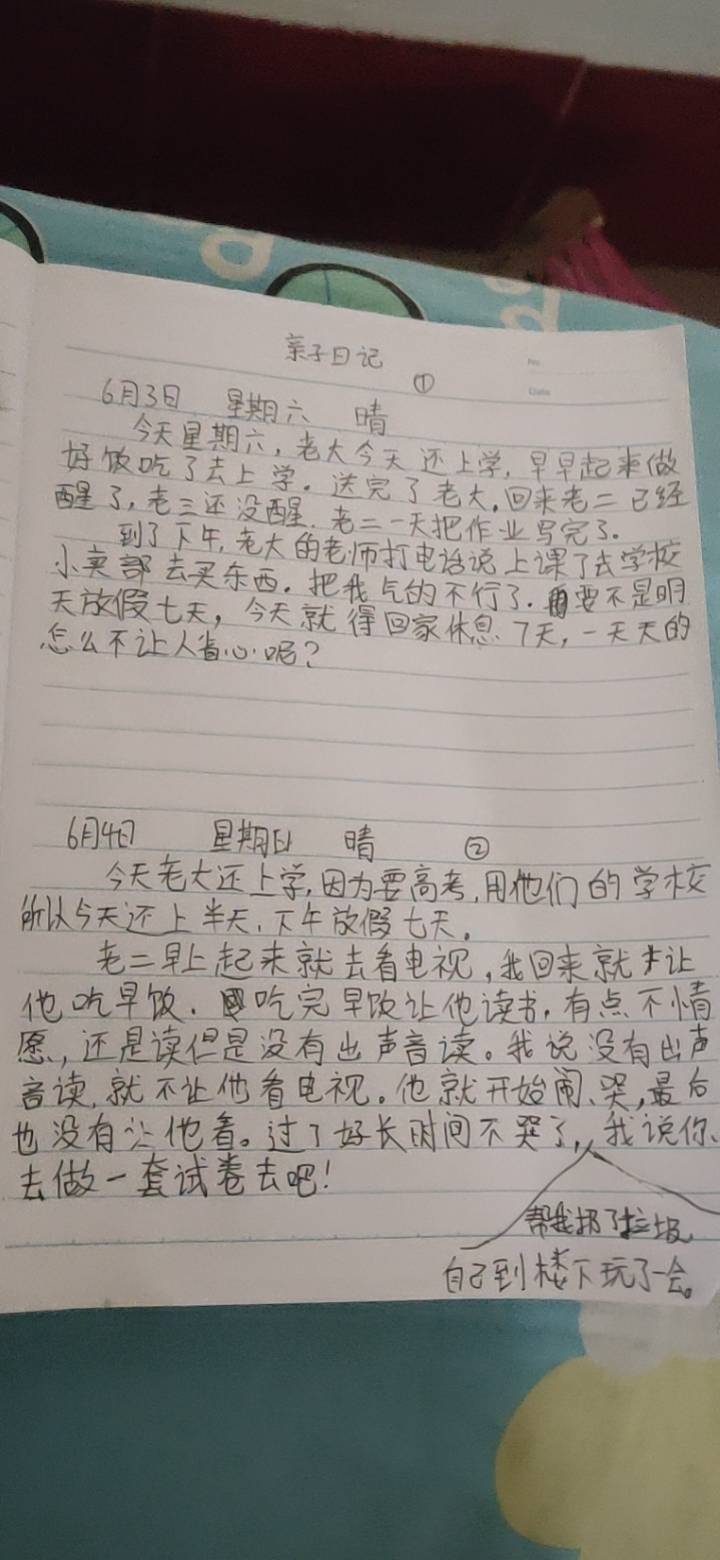 亲子日记
No.
Date
①
6月3日 星期六 晴
今天星期六,老大今天还上学,早早起来做
好饭吃了去上学。送完了老大,回来老二已经
醒了,老三还没醒.老二一天把作业写完了.
到了下午,老大的老师打电话说上课了去学校
小卖部去买东西。把我气的不行了.要不是明
天放假七天,今天就得回家休息7天,一天天的
怎么不让人省心呢?
6月4日 星期日 晴 ②
今天老大还上学,因为要高考,用他们的学校
所以今天还上半天,下午放假七天。
老二早上起来就去看电视,我回来就让
他吃早饭.吃完早饭让他读书,有点不情
愿,还是读但是没有出声音读。我说没有出声
音读,就不让他看电视。他就开始闹、哭,最后
也没有让他看。过了好长时间不哭了,我说你
去做一套试卷去吧!
帮我扔了垃圾,
自己到楼下玩了一会。